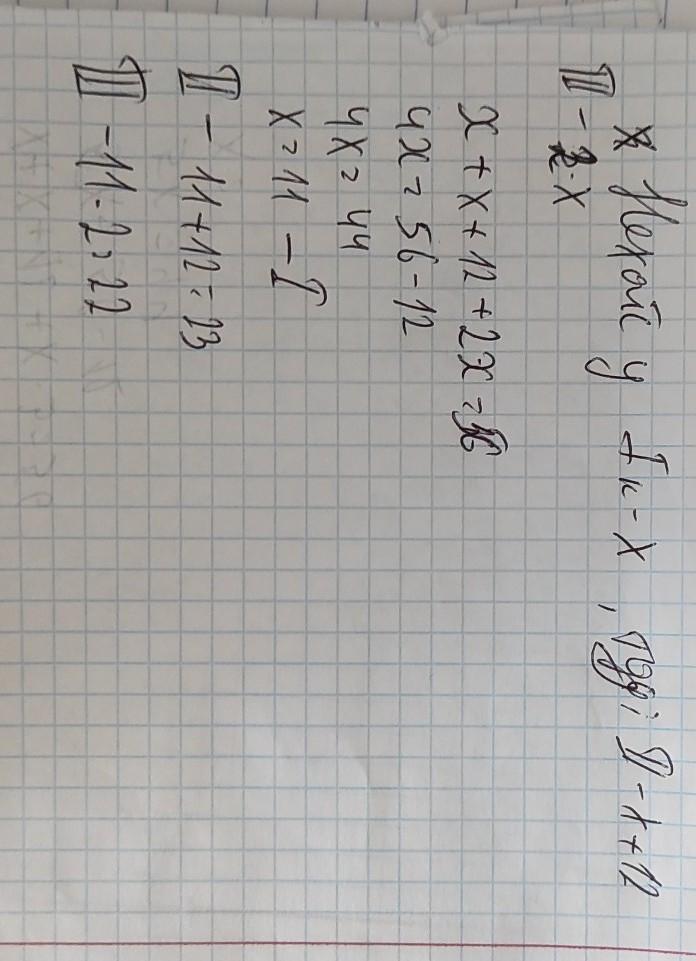 х Нехай у I к - х , тоді II - х + 12
III - 2·х
х + х + 12 + 2х = 56
4х = 56 - 12
4х = 44
х = 11 - I
II - 11 + 12 = 23
III - 11 · 2 = 22